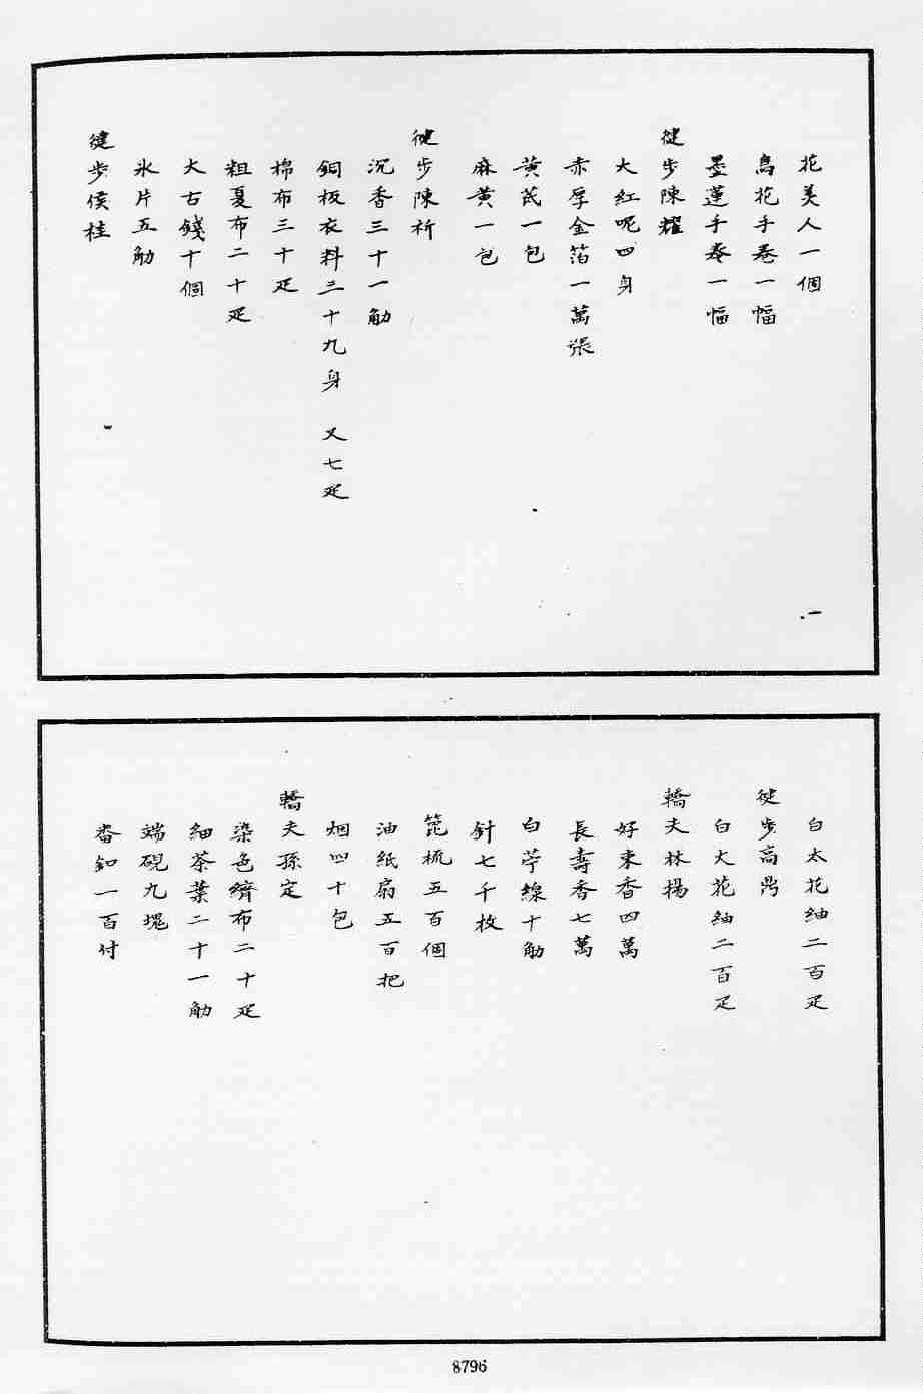 花美人一個
鳥花手卷一幅
墨蓮手卷一幅
健步陳耀
大紅呢四身
赤厚金箔一萬張
黃芪一包
麻黃一包
健步陳祈
沉香三十一觔
銅板衣料三十九身　又七疋
棉布三十疋
粗夏布二十疋
大古錢十個
氷片五觔
健步侯桂
白太花紬二百疋
健步高鼎
白大花紬二百疋
轎夫林揚
好束香四萬
長壽香七萬
白苧線十觔
針七千枚
篦梳五百個
油紙扇五百把
烟四十包
轎夫孫定
染色縎布二十疋
細茶葉二十一觔
端硯九塊
畨釦一百付
8796